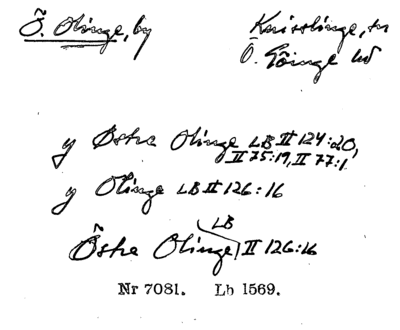 Õ. Olinge, by
Knisslinge, sn
Ö. Göinge hd
y Östra Olinge LB II 124:20,
II 75:19, II 77:1
y Olinge LB II 126:16
LB
Östra Olinge, II 126:16
Nr 7081. Lb 1569.